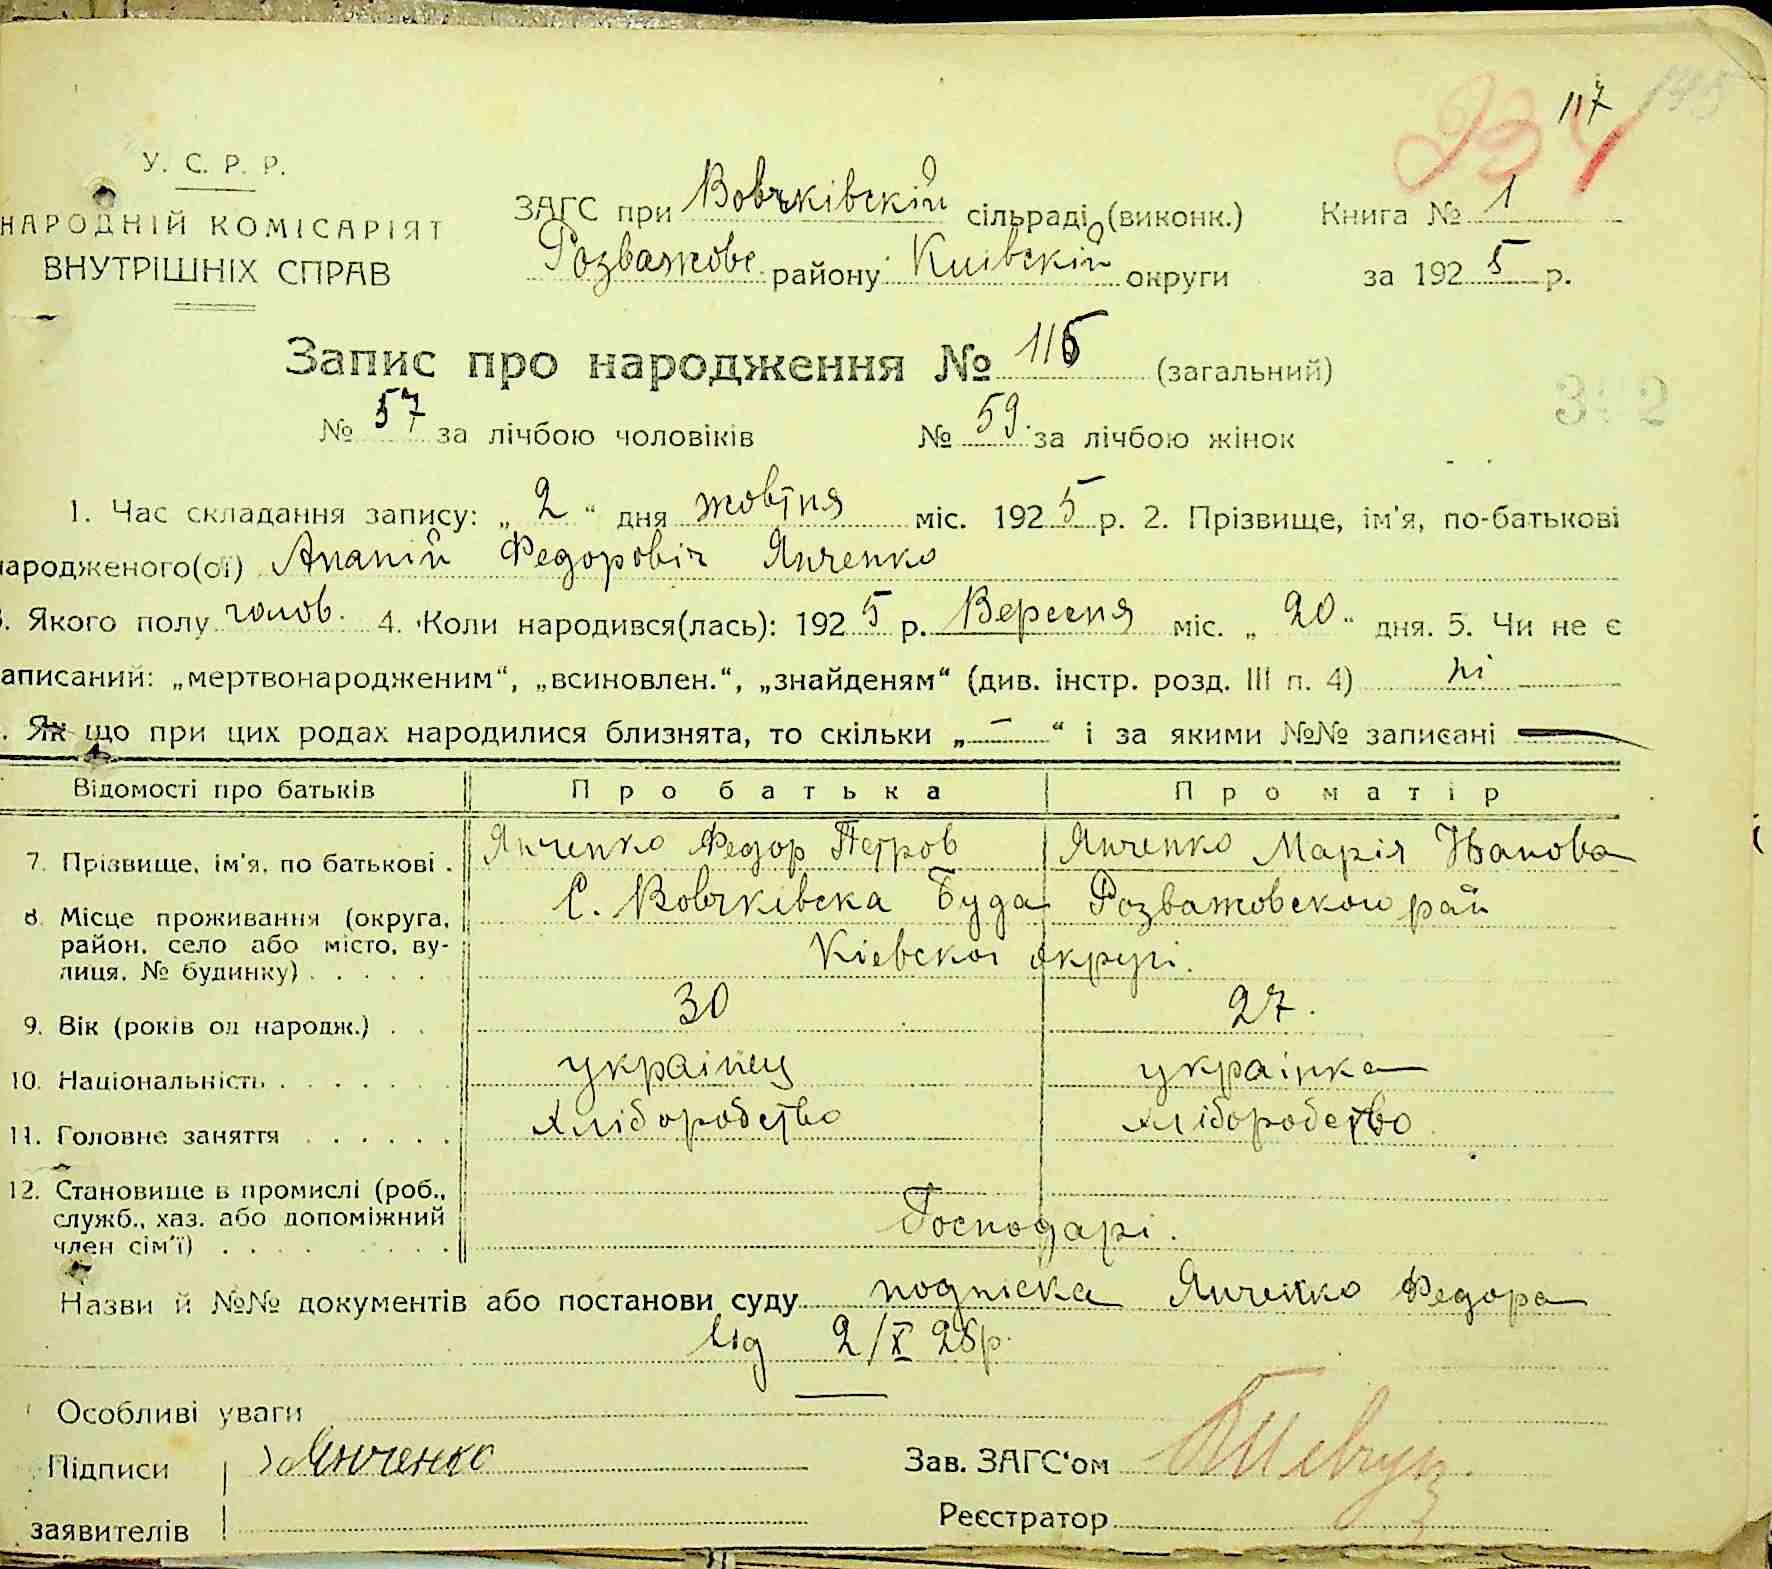 117
У. С. Р. Р.
НАРОДНІЙ КОМІСАРІЯТ
ВНУТРІШНІХ СПРАВ
ЗАГС при Вовчківскій сільраді (виконк.) Книга № 1
Розважове району Киівскій округи за 1925 р.
Запис про народження № 116 (загальний)
№ 57 за лічбою чоловіків № 59. за лічбою жінок
1. Час складання запису: „2“ дня жовтня міс. 1925 р. 2. Прізвище, ім'я, по-батькові
народженого(ої) Ананій Федоровіч Янченко
3. Якого полу чолов. 4. Коли народився(лась): 1925 р. Вересня міс. „20“ дня. 5. Чи не є
записаний: „мертвонародженим“, „всиновлен.“, „знайденям“ (див. інстр. розд. III п. 4) ні
. Як що при цих родах народилися близнята, то скільки „—“ і за якими №№ записані —
Відомості про батьків Про батька Про матір
7. Прізвище, ім'я, по батькові . Янченко Федор Петров Янченко Марія Иванова
8. Місце проживання (округа, район, село або місто, вулиця, № будинку) . . . . . С. Вовчківска Буда Розважовскои рай
Кіевскоі округі.
9. Вік (років од народж.) . . 30 27.
10. Національність . . . . . . . украінец украінка
11. Головне заняття . . . . . . хліборобство хліборобство
12. Становище в промислі (роб., служб., хаз. або допоміжний член сім'ї) . . . . Господарі.
Назви й №№ документів або постанови суду подпіска Янченко Федора
від 2/X 25р.
Особливі уваги —
Підписи Янченко Зав. ЗАГС'ом
заявителів Реєстратор